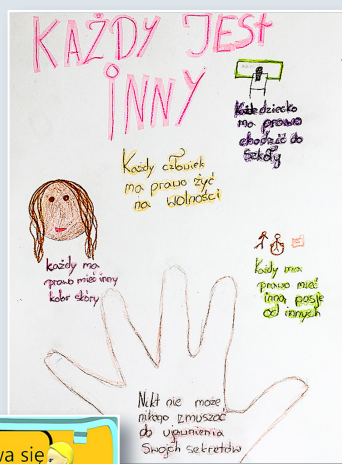 KAŻDY JEST
INNY
Każde dziecko
ma prawo
chodzić do
szkoły
Każdy człowiek
ma prawo żyć
na wolności
każdy ma
prawo mieć inny
kolor skóry
Każdy ma
prawo mieć
inną pasję
od innych
Nikt nie może
nikogo zmuszać
do ujawnienia
Swoich sekretów
wa się